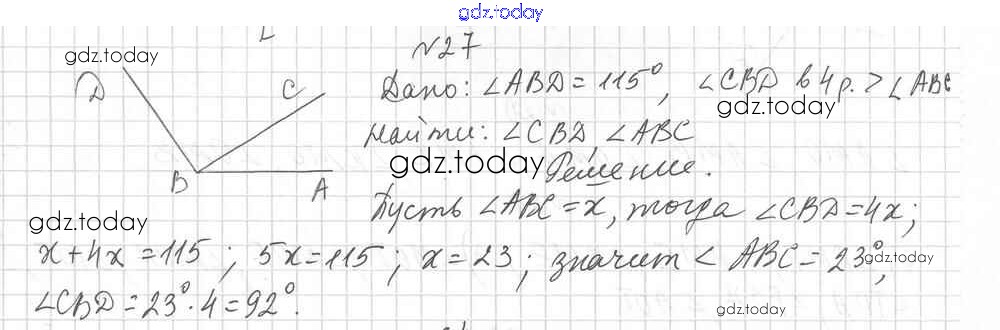 gdz.today
№27
gdz.today
Дано: ∠ABD = 115°, ∠CBD в 4 р. > ∠ABC
D
C
gdz.today
Найти: ∠CBD, ∠ABC
gdz.today
Решение.
B
A
Пусть ∠ABC = x, тогда ∠CBD = 4x;
gdz.today
x + 4x = 115; 5x = 115; x = 23; значит ∠ ABC = 23°,
gdz.today
∠CBD = 23° · 4 = 92°.
gdz.today